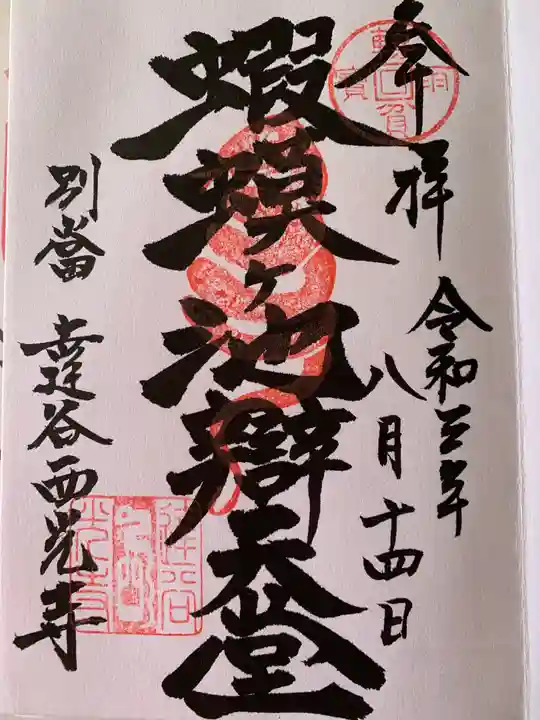 奉拝
令和三年
八月十四日
蝦蟆ヶ池辯天堂
別當 幸運谷西光寺